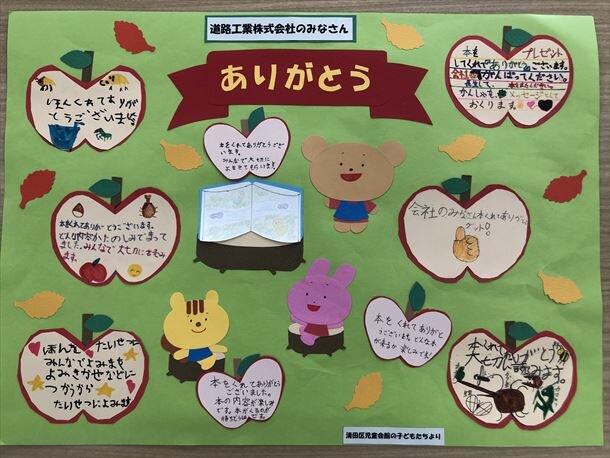 道路工業株式会社のみなさん
ありがとう
ほんくれてありが
とうございます。
本を プレゼント
してくれてありがとうございます。
会社のがんばってください。
かんしゃを メッセージとして
おくります。
本をくれてありがとうござ
います。
みんなで大切に
よませてもらいます!
本をくれてありがとうございます。
どんな内容かたのしみでまって
ました。みんなで大切に本をよみ
ます。
会社のみなさん本くれてありがとう
グット!!
ほんを たいせつ
みんなでよみまた
よみきかせなどに
つかうから
たいせつによみます
本をくれてありがとう
ございました。
本の内容が楽しみ
です。本がくるのが
待ちどうしいです。
本をくれてありがと
うございます。どんな本
が来るか楽しみです!
本くれてありがとう!!
大切に読みます。
清田区児童会館の子どもたちより